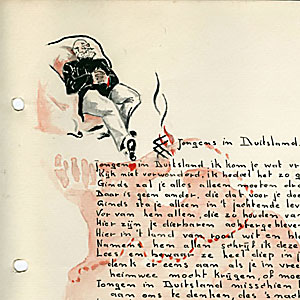 Jongens in Duitsland.
Jongens in Duitsland, ik kom je wat vr
Kijk niet verwonderd, ik bedoel het zo g
Ginds zal je alles alleen moeten dra
Daar is geen ander, die dat voor je doe
Ginds sta je alleen in 't jachtende lev
Ver van hen allen, die zo houden van
Hier zijn je dierbaren achtergebleve
Hier in 't land van
Namens hen allen schrijf ik deze
Lees en bewaar ze heel diep in j
denk er een aan als je in vree
heimwee mocht krijgen of moe
Jongen in Duitsland misschien
aan ons te denken des 's nach